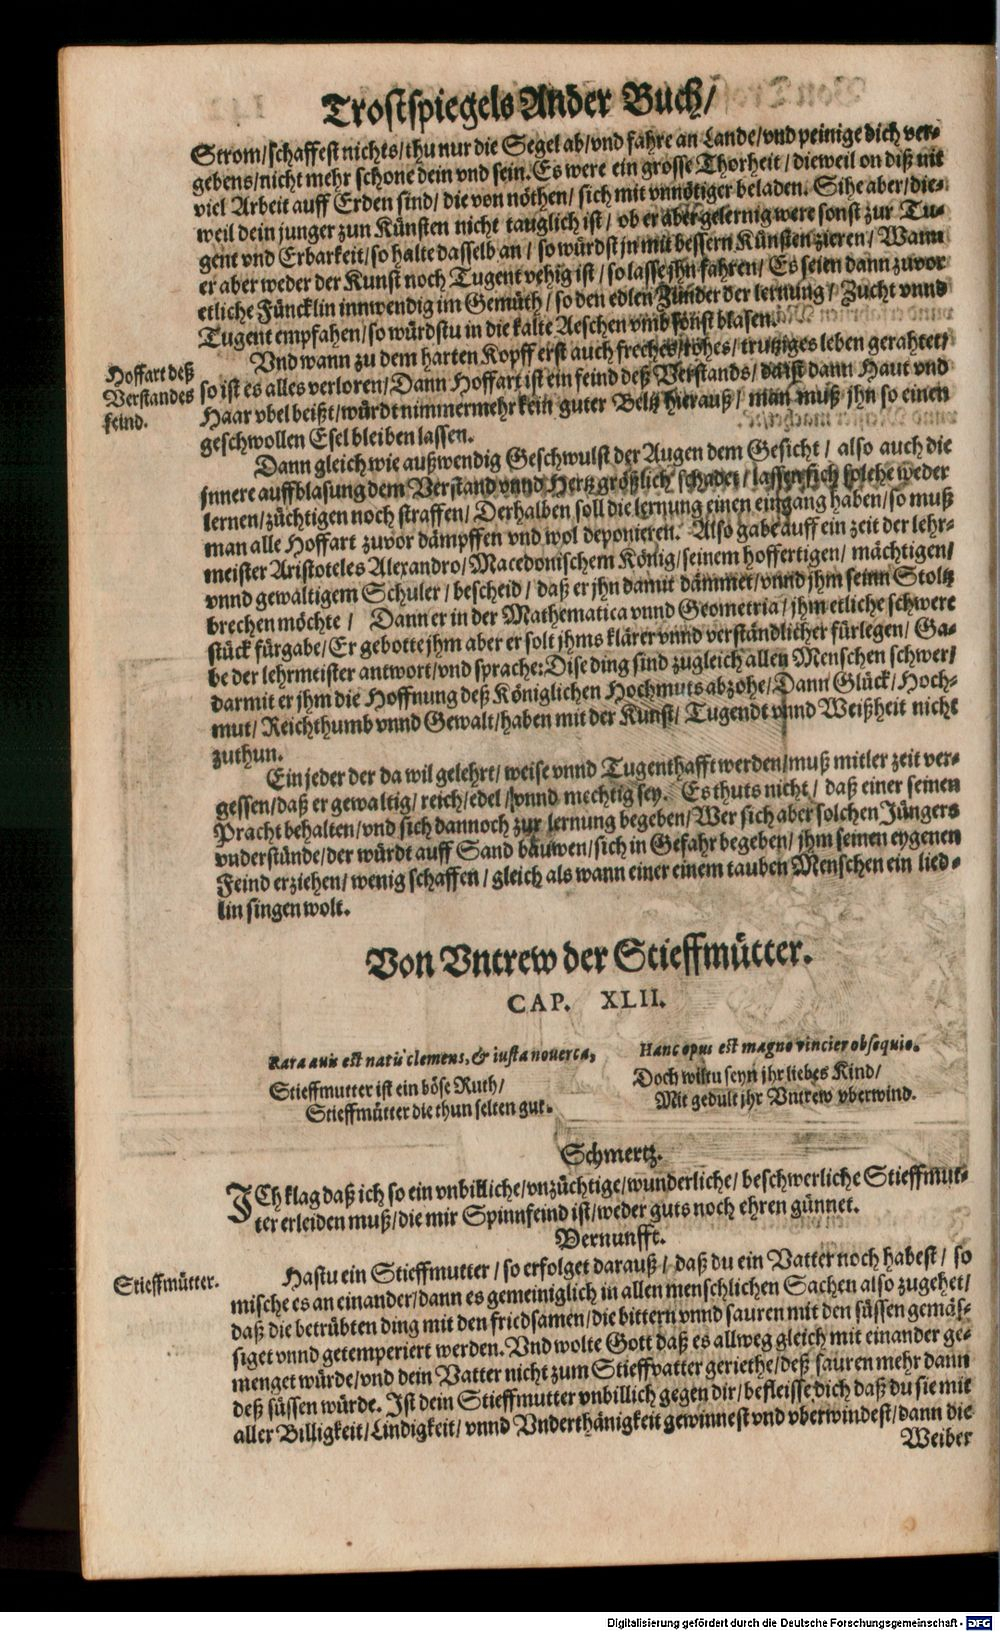 Trostspiegels Ander Buch/
Strom/schaffest nichts/thu nur die Segel ab/vnd fahre an Lande/vnd peinige dich ver-
gebens/nicht mehr schone dein vnd sein. Es were ein grosse Thorheit/dieweil on diß nit
viel Arbeit auff Erden sind/die von nöthen/sich mit vnnötiger beladen. Sihe aber/die-
weil dein junger zun Künsten nicht tauglich ist/ob er aber gelernig were sonst zur Tu-
gent vnd Erbarkeit/so halte dasselb an/so würdst jn mit bessern Künsten zieren/Wann
er aber weder der Kunst noch Tugent vehig ist/so lasse jhn fahren/Es seien dann zuvor
etliche Füncklin innwendig im Gemüth/so den edlen Zünder der lernung/Zucht vnnd
Tugent empfahen/so würdstu in die kalte Aeschen vmb sonst blasen.
Vnd wann zu dem harten Kopff erst auch freches/rohes/trutziges leben gerahtet/
Hoffart deß
Verstandes
feind.
so ist es alles verloren/Dann Hoffart ist ein feind deß Verstands/da ist dann Haut vnd
Haar vbel beißt/würdt nimmermehr kein guter Beltz hierauß/man muß jhn so einen
geschwollen Esel bleiben lassen.
Dann gleich wie außwendig Geschwulst der Augen dem Gesicht/also auch die
jnnere auffblasung dem Verstand vnnd Hertz größlich schadet/lassen sich solche weder
lernen/züchtigen noch straffen/Derhalben soll die lernung einen eingang haben/so muß
man alle Hoffart zuvor dämpffen vnd wol deponieren. Also gabe auff ein zeit der lehr-
meister Aristoteles Alexandro/Macedonischem König/seinem hoffertigen/mächtigen/
vnnd gewaltigem Schuler/bescheid/daß er jhn damit dämmet/vnnd jhm seinn Stoltz
brechen möchte/Dann er in der Mathematica vnnd Geometria/jhm etliche schwere
stück fürgabe/Er gebotte jhm aber er solt jhms klärer vnnd verständlicher fürlegen/Ga-
be der lehrmeister antwort/vnd sprache: Dise ding sind zugleich allen Menschen schwer/
darmit er jhm die Hoffnung deß Königlichen Hochmuts abzohe/Dann Glück/Hoch-
mut/Reichthumb vnnd Gewalt/haben mit der Kunst/Tugendt vnnd Weißheit nicht
zuthun.
Ein jeder der da wil gelehrt/weise vnnd Tugenthafft werden/muß mitler zeit ver-
gessen/daß er gewaltig/reich/edel/vnnd mechtig sey. Es thuts nicht/daß einer seinen
Pracht behalten/vnd sich dannoch zur lernung begeben/Wer sich aber solchen Jüngers
vnderstünde/der würdt auff Sand bauwen/sich in Gefahr begeben/jhm seinen eygenen
Feind erziehen/wenig schaffen/gleich als wann einer einem tauben Menschen ein lied-
lin singen wolt.
Von Vntrew der Stieffmütter.
CAP. XLII.
Rara auis est natu' clemens, & iusta nouerca,
Stieffmutter ist ein böse Ruth/
Stieffmütter die thun selten gut.
Hanc opus est magno vincier obsequio.
Doch wiltu seyn jhr liebes Kind/
Mit gedult jhr Vntrew vberwind.
Schmertz.
JCh klag daß ich so ein vnbilliche/vnzüchtige/wunderliche/beschwerliche Stieffmut-
ter erleiden muß/die mir Spinnfeind ist/weder guts noch ehren günnet.
Vernunfft.
Stieffmütter.
Hastu ein Stieffmutter/so erfolget darauß/daß du ein Vatter noch habest/so
mische es an einander/dann es gemeiniglich in allen menschlichen Sachen also zugehet/
daß die betrübten ding mit den friedsamen/die bittern vnnd sauren mit den süssen gemäs-
siget vnnd getemperiert werden. Vnd wolte Gott daß es allweg gleich mit einander ge-
menget würde/vnd dein Vatter nicht zum Stieffvatter geriethe/deß sauren mehr dann
deß süssen würde. Ist dein Stieffmutter vnbillich gegen dir/befleisse dich daß du sie mit
aller Billigkeit/Lindigkeit/vnnd Vnderthänigkeit gewinnest vnd vberwindest/dann die
Weiber
Digitalisierung gefördert durch die Deutsche Forschungsgemeinschaft - DFG